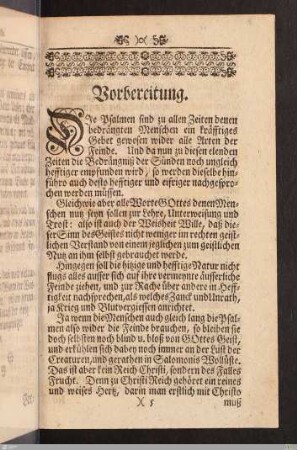 )o(
Vorbereitung.
Die Psalmen sind zu allen Zeiten denen
bedrängten Menschen ein kräfftiges
Gebet gewesen wider alle Arten der
Feinde. Und da nun zu diesen elenden
Zeiten die Bedrängniß der Sünden noch ungleich
hefftiger empfunden wird, so werden dieselbe hin-
führo auch desto hefftiger und eifriger nachgespro-
chen werden müssen.
Gleichwie aber alle Worte GOttes denen Men-
schen nutz seyn sollen zur Lehre, Unterweisung und
Trost: also ist auch der Weisheit Wille, daß die-
ser Sinn des Geistes nicht weniger im rechten geist-
lichen Verstand von einem jeglichen zum geistlichen
Nutz an ihm selbst gebraucht werde.
Hingegen soll die hitzige und hefftige Natur nicht
flugs alles ausser sich auf ihre vermeynte äusserliche
Feinde ziehen, und zur Rache über andere in Heff-
tigkeit nachsprechen, als welches Zanck und Unrath,
ja Krieg und Blutvergiessen anrichtet.
Ja wenn die Menschen auch gleich lang die Psal-
men also wider die Feinde brauchen, so bleiben sie
doch selbsten noch blind u. bloß von GOttes Geist,
und erkühlen sich dabey noch immer an der Lust der
Creaturen, und gerathen in Salomonis Wollüste.
Das ist aber kein Reich Christi, sondern des Falles
Frucht. Denn zu Christi Reich gehöret ein reines
und weises Hertz, darin man erstlich mit Christo
X 5 muß